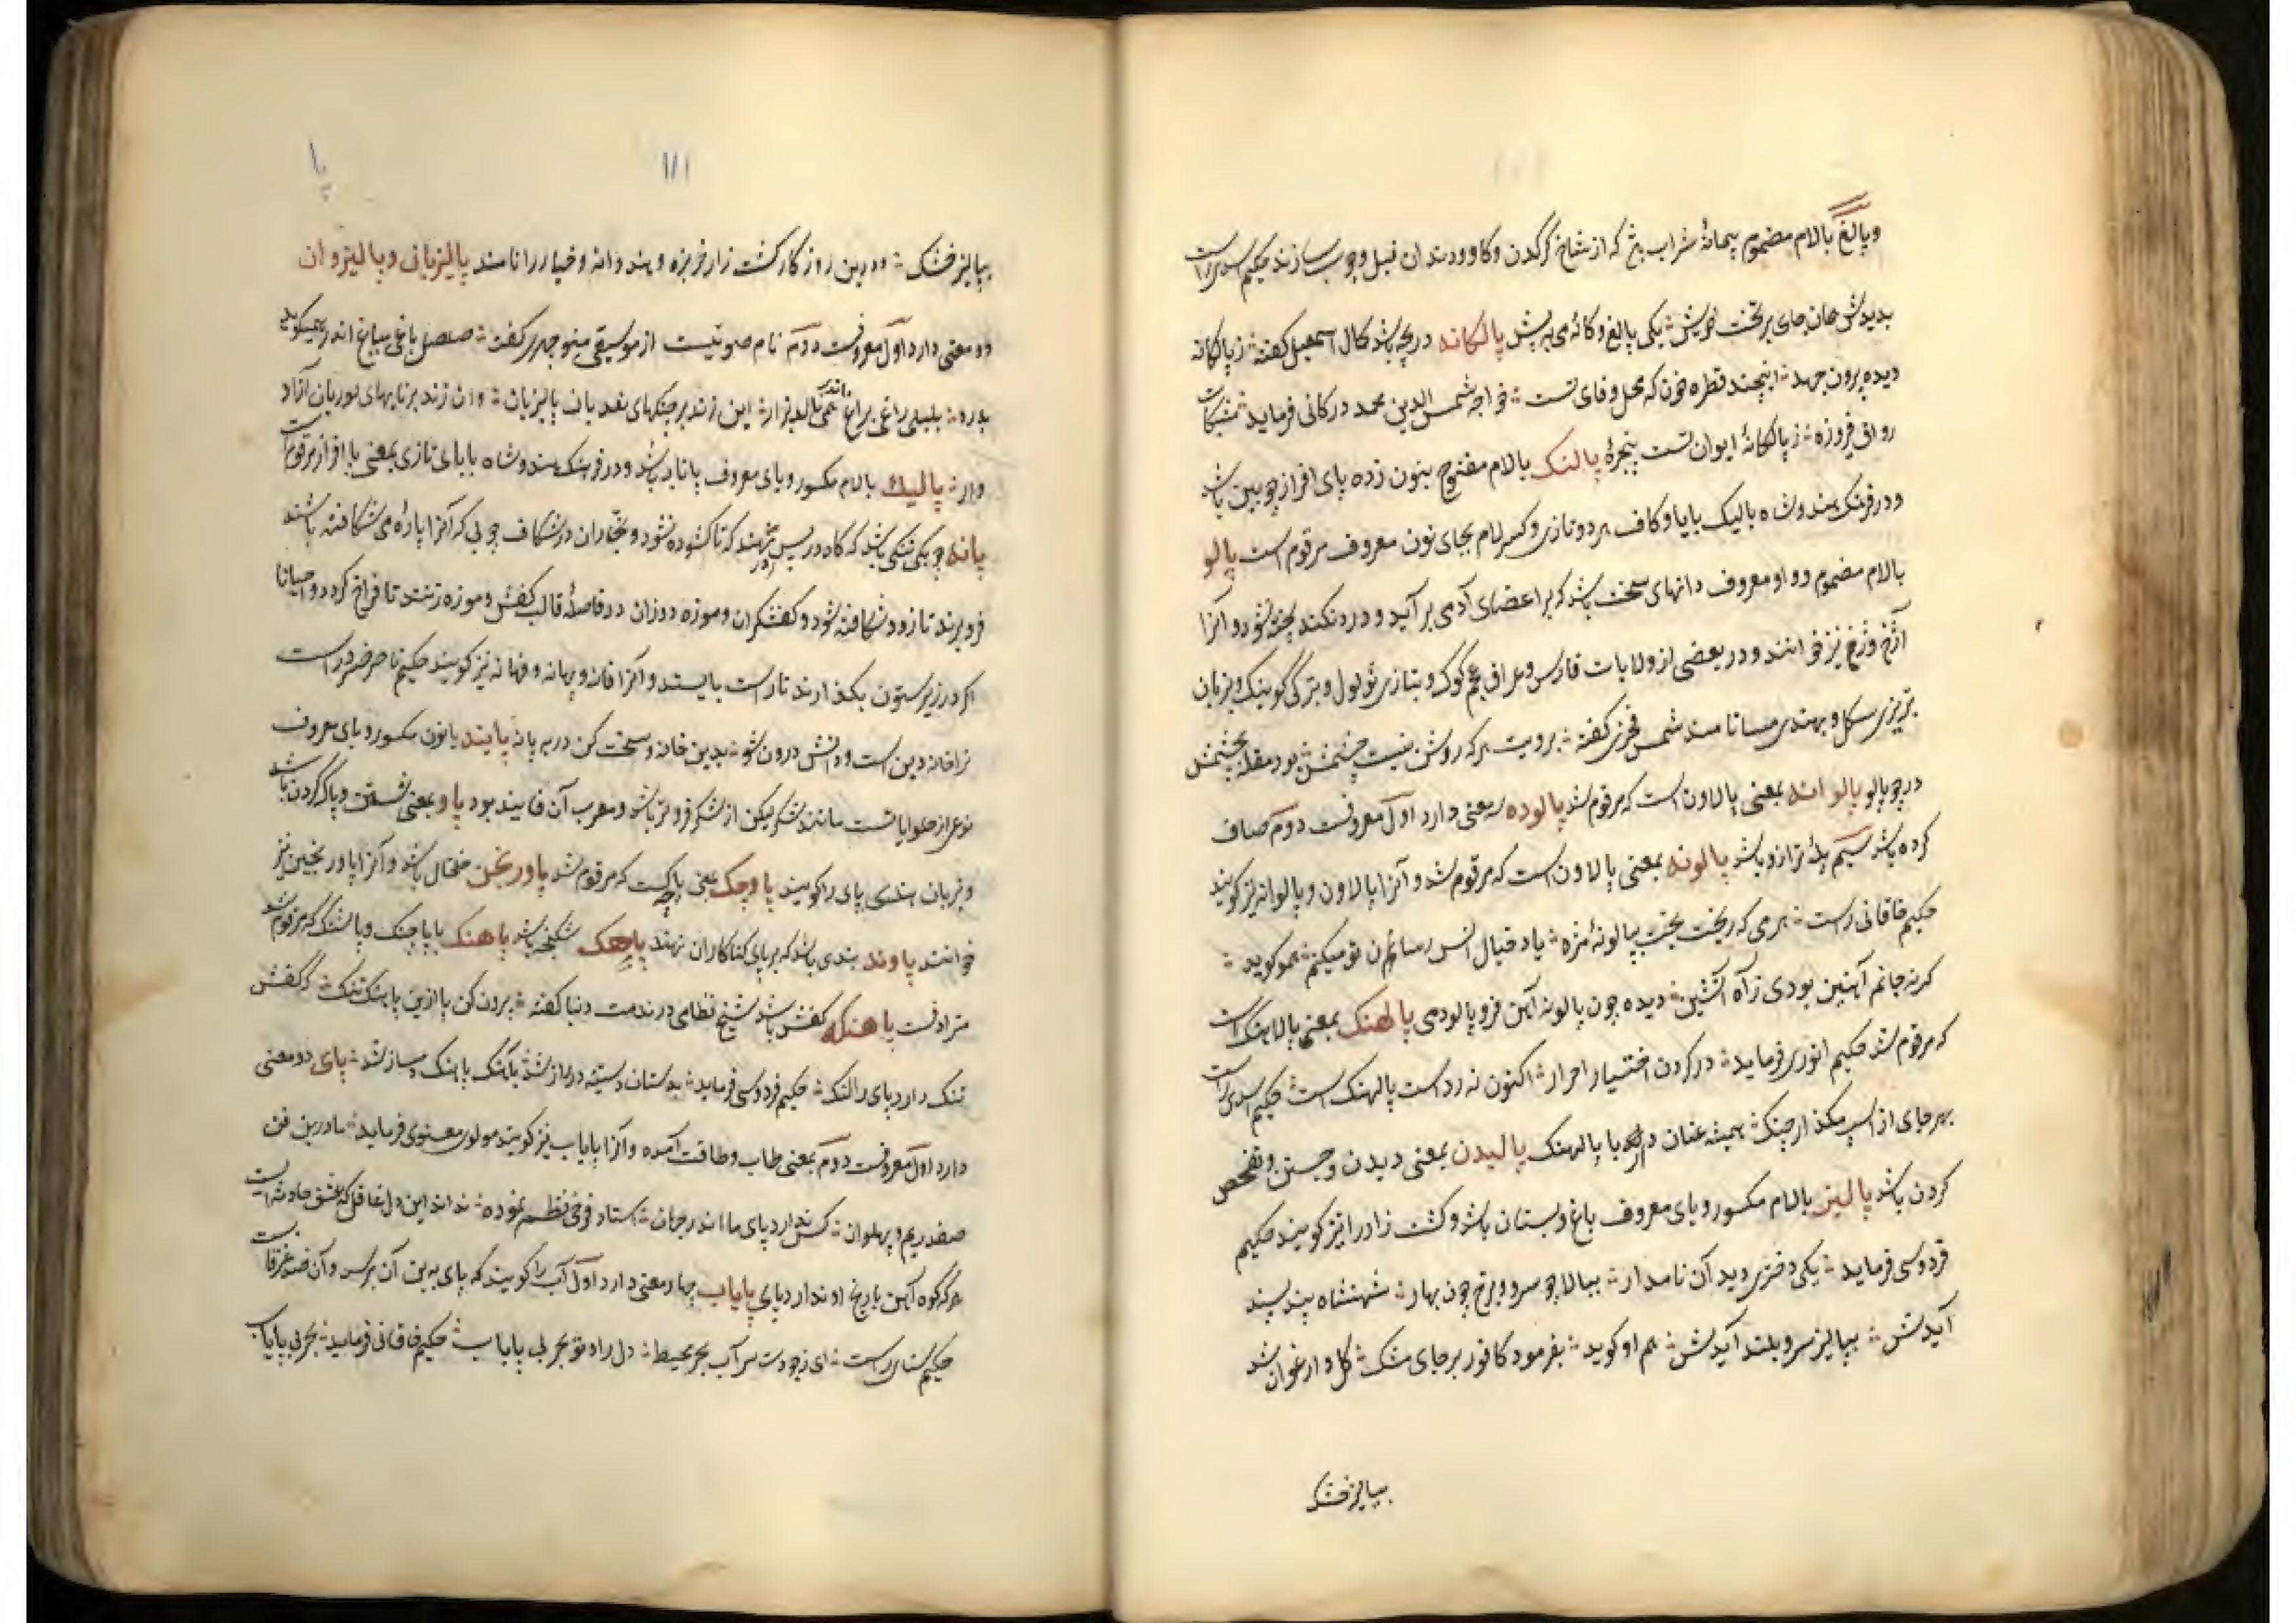 وپالغ بالام مضموم پیمانهٔ شراب که از شاخ کرکدن وکاو ودندان فیل وچوب سازند حکیم اسدی راست
بدیدش جای بر تخت خویش یکی پالغ وکانه می به پیش پالکانه دریچه باشد کمال اسمعیل کفته ز پالکانه
دیده برون جهد اینچند قطره خون که محل وفای تست خواجه شمس الدین محمد درکانی فرماید مشبکات
رواق فیروزه ز پالکانهٔ ایوان تست پنجرهٔ پالنک بالام مفتوح بنون زده پای افزار چوبین باشد
ودر فرهنک هندوشاه بالیک بابا وکاف هر دو تازی وکسر لام بجای نون معروف مرقوم است پالو
بالام مضموم وواو معروف دانهای سخت باشد که بر اعضای آدمی برآید ودرد نکند پخته نشود وآنرا
آژخ وزخ نیز خوانند ودر بعضی از ولایات فارس وعراق عجم کوک وبتازی ثؤلول وبترکی کوینک وبزبان
تبریزی سکل وبهندی مسا نامند شمس فخری کفته برویت هر که روشن نیست چشمش بود مقله بچشمش
در چو پالو پالوانه بمعنی پالاون است که مرقوم شد پالوده سه معنی دارد اول معروفست دوم صاف
کرده باشد سیم پلهٔ ترازو باشد پالونه بمعنی پالاون است که مرقوم شد وآنرا پالاون وپالوانه نیز کویند
حکیم خاقانی راست هر می که ریخت بخت بپالونهٔ مژه یاد خیال انس رسانان تو میکنم همو کوید
کر نه جانم آهنین بودی ز آه آتشین دیده چون پالونه آهن فرو پالودمی پالهنک بمعنی پالاهنک است
که مرقوم شد حکیم انوری فرماید در کردن اختیار احرار اکنون نه رد است پالهنک است حکیم اسدی راست
بهر جای از اسپ مکذار چنک همیشه عنان دار با پالهنک پالیدن بمعنی دیدن وجستن وتفحص
کردن باشد پالیز بالام مکسور ویای معروف باغ وبستان باشد وکشت زار را نیز کویند حکیم
فردوسی فرماید یکی دختری دید آن نامدار ببالا چو سرو وبرخ چون بهار شهنشاه پند پسند
آیدش بپالیز سرو بلند آیدش هم او کوید بفرمود کافور بر جای مشک کل وارغوان شد
بپالیز خشک
۱۱۱
پا
بپالیز خشک ودرین روزکار کشت زار خربزه وهندوانه وخیار را نامند پالیزبانی وپالیزوان
دو معنی دارد اول معروفست دوم نام صوتیست از موسیقی منوچهری کفت صلصل باغی بباغ اندر همیکوید
بدرد بلبل راغی براغ اندر همی نالد بزار این زند بر چنکهای سغدیان پالیزبان وان زند بر نایهای لوریان آزاد
وار پالیک بالام مکسور ویای معروف پاتابه باشد ودر فرهنک هندوشاه بابای تازی بمعنی پاافزار مرقوم است
پانه چوبکی تنکی باشد که در پس در نهند که تا کشوده نشود ونجاران در شکاف چوبی که آنرا پاره می شکافته باشند
فرو برند تا زود شکافته شود وکفشکران وموزه دوزان در فاصلهٔ قالب کفش وموزه زنند تا فراخ کردد واحیانا
اکر در زیر ستون بکذارند تا راست بایستد وآنرا فانه وپهانه وفهانه نیز کویند حکیم ناصر خسرو راست
ترا خانه دین است ودانش درون شو بدین خانه وسخت کن در به پانه پانید بانون مکسور ویای معروف
نوعی از حلوایاتست مانند شکر لیکن از شکر فروتر باشد ومعرب آن فانید بود پاو بمعنی شستن وپاک کردن باشد
وبزبان هندی پای را کویند پاوچک بمعنی پاچک است که مرقوم شد پاورنجن خلخال باشد وآنرا پاورنجین نیز
خوانند پاوند بندی باشد که بر پای کناکاران نهند پاهک شکنجه باشد پاهنک باپاچنک وپاشنک که مرقوم شد
مترادفست پاهنکه کفش باشد شیخ نظامی در مذمت دنیا کفته برون کن پا ازین پاهنک تنک که کفش
تنک دارد پای را لنک حکیم فردوسی فرماید بدستان پای دو معنی
دارد اول معروفست دوم بمعنی تاب وطاقت آمده وآنرا پایاب نیز کویند مولوی معنوی فرماید ما درین فن
صفدریم وپهلوان کس ندارد پای ما اندر جهان استاد فرخی نظم نموده نداند این دل غافل که عشق حادثه ایست
که کوه آهن با رنج او ندارد پای پایاب چهار معنی دارد اول آب را کویند که پای به بن آن برسد وآن ضد غرقابست
حکیم سنائی راست ای زجودت سراب بحر محیط دل راه تو بحر بی پایاب حکیم خاقانی فرماید بحر بی پایاب